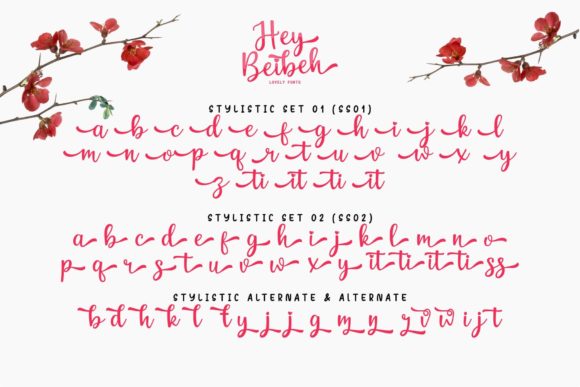 Hey
Beibeh
LOVELY FONTS
STYLISTIC SET 01 (SS01)
a b c d e f g h i j k l
m n o p q r t u v w x y
z ti it ti it
STYLISTIC SET 02 (SS02)
a b c d e f g h i j k l m n o
p q r s t u v w x y it ti it ti ss
STYLISTIC ALTERNATE & ALTERNATE
b d h k l t y j j g m n y z v w i j t